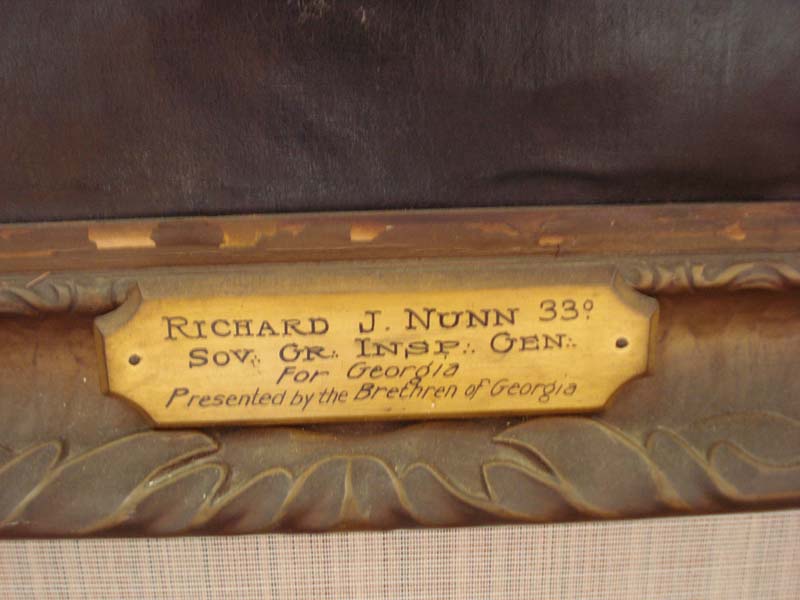 RICHARD J. NUNN 33º
SOV∴ GR∴ INSP∴ GEN∴
For Georgia
Presented by the Brethren of Georgia